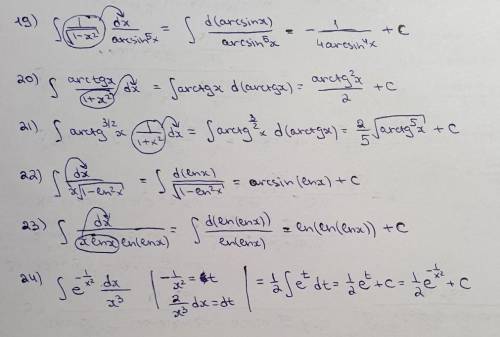 19) ∫ 1/√(1-x²) dx/arcsin⁵x = ∫ d(arcsinx)/arcsin⁵x = - 1/(4arcsin⁴x) + C
20) ∫ arctgx/(1+x²) dx = ∫arctgx d(arctgx) = arctg²x/2 + C
21) ∫ arctg^(3/2)x 1/(1+x²) dx = ∫arctg^(3/2)x d(arctgx) = 2/5 √(arctg⁵x) + C
22) ∫ dx/(x√(1-ln²x)) = ∫ d(lnx)/√(1-ln²x) = arcsin(lnx) + C
23) ∫ dx/(xlnx ln(lnx)) = ∫ d(ln(lnx))/ln(lnx) = ln(ln(lnx)) + C
24) ∫e^(-1/x²) dx/x³ | -1/x² = t 2/x³ dx = dt | = 1/2 ∫e^t dt = 1/2 e^t + C = 1/2 e^(-1/x²) + C